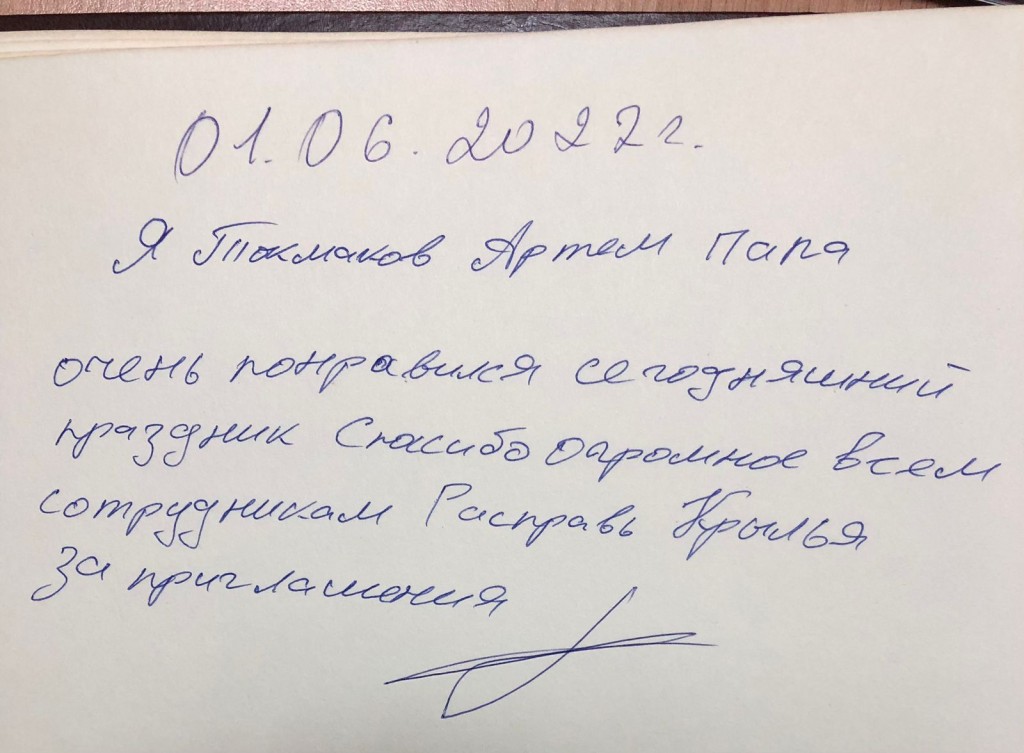 01.06.2022г.
Я Токмаков Артем Папа
очень понравился сегодняшний
праздник Спасибо огромное всем
сотрудникам Расправь Крылья
за приглашения